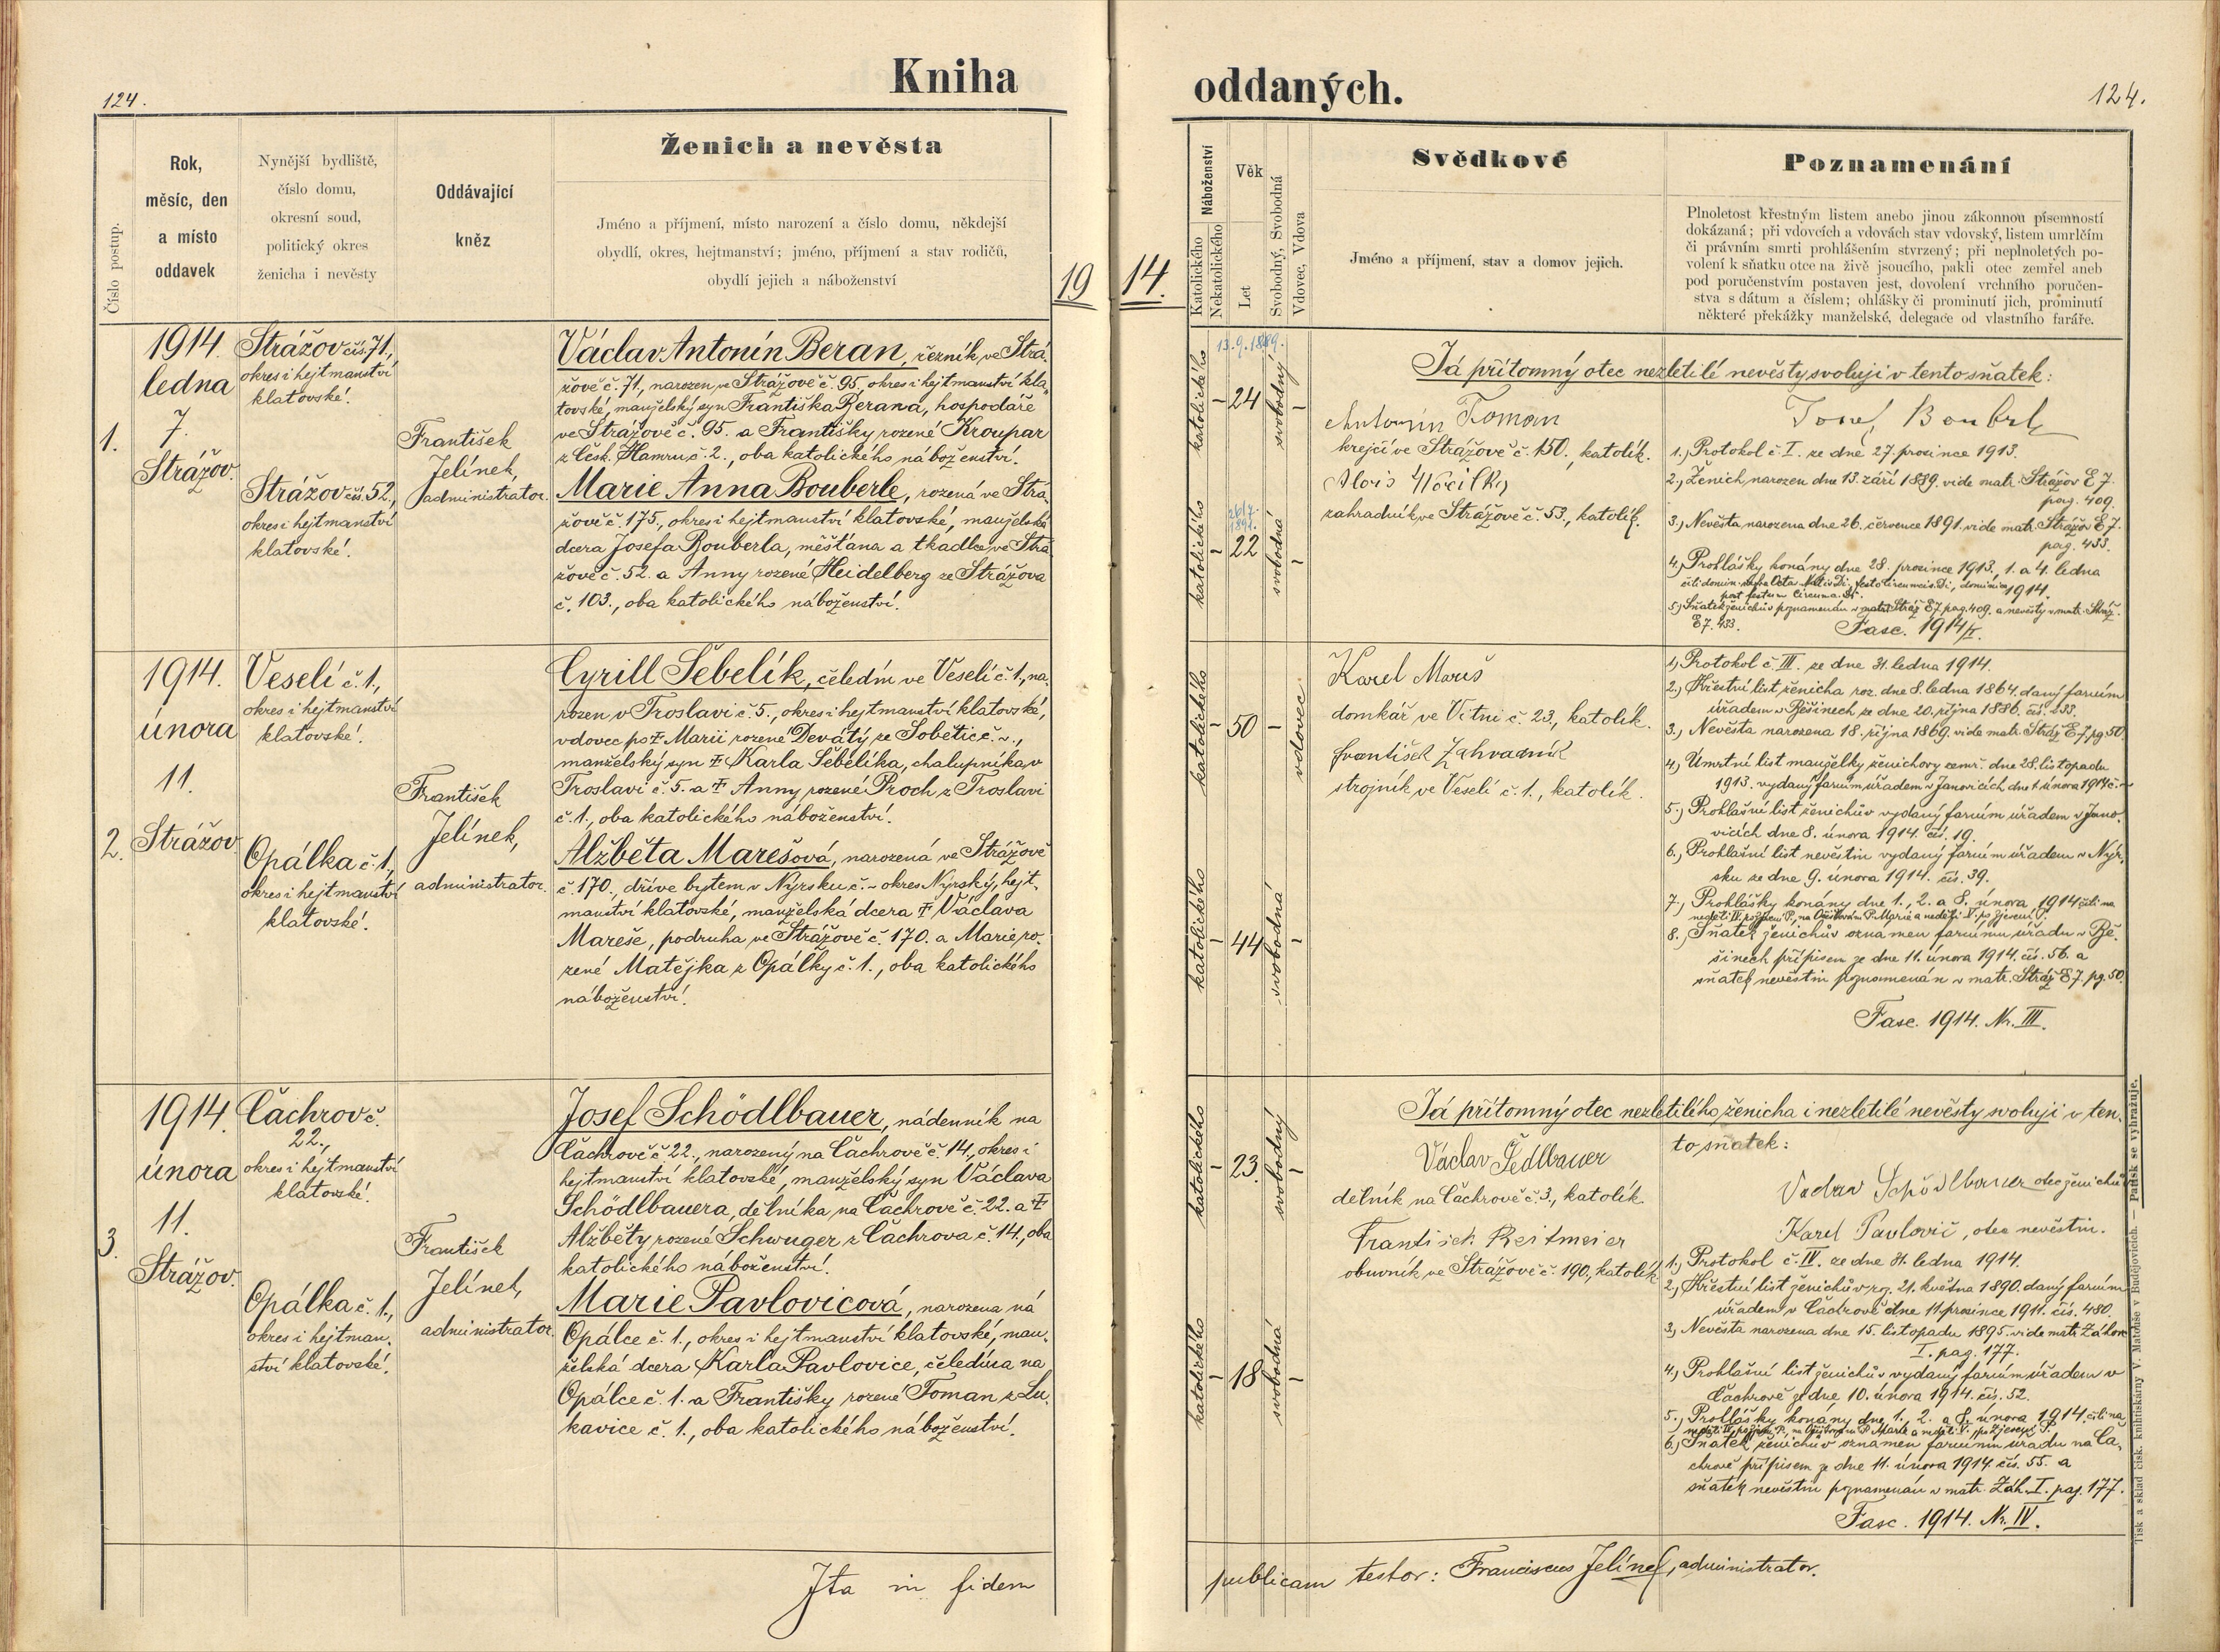 124.
Kniha
Číslo postup.
Rok,
měsíc, den
a místo
oddavek
Nynější bydliště,
číslo domu,
okresní soud,
politický okres
ženicha i nevěsty
Oddávající
kněz
Ženich a nevěsta
Jméno a příjmení, místo narození a číslo domu, někdejší
obydlí, okres, hejtmanství; jméno, příjmení a stav rodičů,
obydlí jejich a náboženství
19
1.
1914.
ledna
7.
Strážov.
Strážov čís. 71.,
okres i hejtmanství
klatovské.
Strážov čís. 52.,
okres i hejtmanství
klatovské.
František
Jelínek,
administrátor.
Václav Antonín Beran, řezník ve Strá-
žově č. 71, narozen ve Strážově č. 95. okres i hejtmanství kla-
tovské, manželský syn Františka Berana, hospodáře
ve Strážově č. 95. a Františky rozené Kroupar
z Česk. Hamru č. 2., oba katolického náboženství.
Marie Anna Bouberle, rozená ve Strá-
žově č. 175., okres i hejtmanství klatovské, manželská
dcera Josefa Bouberla, měšťana a tkadlce ve Strá
žově č. 52. a Anny rozené Heidelberg ze Strážova
č. 103., oba katolického náboženství.
2.
1914.
února
11.
Strážov.
Veselí č. 1.,
okres i hejtmanství
klatovské.
Opálka č. 1.,
okres i hejtmanství
klatovské.
František
Jelínek,
administrator.
Cyrill Šebelík, čeledín ve Veselí č. 1., na-
rozen v Troslavi č. 5., okres i hejtmanství klatovské,
vdovec po † Marii rozené Devátý ze Sobětic č. ~.,
manželský syn † Karla Šebelíka, chalupníka v
Troslavi č. 5. a † Anny rozené Proch z Troslavi
č. 1., oba katolického náboženství.
Alžběta Marešová, narozená ve Strážově
č. 170., dříve bytem v Nýrsku č. ~ okres Nýrský, hejt-
manství klatovské, manželská dcera † Václava
Mareše, podruha ve Strážově č. 170. a Marie ro-
zené Matějka z Opálky č. 1., oba katolického
náboženství.
3.
1914.
února
11.
Strážov.
Čachrov č.
22.,
okres i hejtmanství
klatovské.
Opálka č. 1.,
okres i hejtman-
ství klatovské.
František
Jelínek,
administrator.
Josef Schödlbauer, nádenník na
Čachrově č 22., narozený na Čachrově č. 14., okres i
hejtmanství klatovské, manželský syn Václava
Schödlbauera, dělníka na Čachrově č. 22. a †
Alžběty rozené Schwuger z Čachrova č. 14., oba
katolického náboženství.
Marie Pavlovicová, narozena na
Opálce č. 1., okres i hejtmanství klatovské, man-
želská dcera Karla Pavlovice, čeledína na
Opálce č. 1. a Františky rozené Toman z Lu-
kavice č. 1., oba katolického náboženství.
Ita in fidem
oddaných.
124.
14.
Náboženství
Katolického
Nekatolického
Věk
Let
Svobodný, Svobodná
Vdovec, Vdova
Svědkové
Jméno a příjmení, stav a domov jejich.
Poznamenání
Plnoletost křestným listem anebo jinou zákonnou písemností
dokázaná; při vdovcích a vdovách stav vdovský, listem umrlčím
či právním smrti prohlášením stvrzený; při neplnoletých po-
volení k sňatku otce na živě jsoucího, pakli otec zemřel aneb
pod poručenstvím postaven jest, dovolení vrchního poručen-
stva s dátum a číslem; ohlášky či prominutí jich, prominutí
některé překážky manželské, delegace od vlastního faráře.
katolického
13. 9. 1889.
24
svobodný
katolického
26/7.
1891.
22
svobodná
Antonín Toman
krejčí ve Strážově č. 150., katolík.
Alois
zahradník ve Strážově č. 53., katolík.
Já přítomný otec nezletilé nevěsty svoluji v tento sňatek:
1.) Protokol č. I. ze dne 27. prosince 1913.
2.) Ženich narozen dne 13. září 1889. vide matr. Strážov E 7.
pag. 409.
3.) Nevěsta narozena dne 26. července 1891. vide matr. Strážov E 7.
pag. 433.
4.) Prohlášky konány dne 28. prosince 1913., 1. a 4. ledna
1914.
5.) Sňatek ženichův poznamenán v matr. Stráž. E7. pag. 409. a nevěsty v matr. Stráž.
E 7. 433.
Fasc. 1914/I.
katolického
50
vdovec
katolického
44
svobodná
Karel Mareš
domkář ve Vítni č. 23., katolík.
František Zahradník
strojník ve Veselí č. 1., katolík.
1.) Protokol č. III. ze dne 31. ledna 1914.
2.) Křestní list ženicha roz. dne 8. ledna 1864. daný farním
úřadem v Běšinech ze dne 20. října 1886. čís. 233.
3.) Nevěsta narozena 18. října 1869. vide matr. Stráž E 7. pg 50.
4.) Úmrtní list manželky ženichovy zemř. dne 28. listopadu
1913. vydaný farním úřadem v Janovicích dne 1. února 1914 č. ~
5.) Prohlašní list ženichův vydaný farním úřadem v Jano-
vicích dne 8. února 1914. čís. 19.
6.) Prohlašní list nevěstin vydaný farním úřadem v Nýr-
sku ze dne 9. února 1914. čís. 39.
7.) Prohlášky konány dne 1., 2. a 8. února 1914 čili na
neděli IV. po Zjevení P., na Očišťování P. Marie a neděli V. po Zjevení P.
8.) Sňatek ženichův oznámen farnímu úřadu v Bě-
šinech přípisem ze dne 11. února 1914. čís. 56. a
sňatek nevěstin poznamenán v matr. Stráž E 7. pg. 50.
Fasc. 1914. Nr. III.
katolického
23.
svobodný
katolického
18
svobodná
Václav Šedlbauer
dělník na Čachrově č. 3., katolík
František Reitmeier
obuvník ve Strážově č. 190., katolík
Já přítomný otec nezletilého ženicha i nezletilé nevěsty svoluji v ten-
to sňatek:
Václav Schödlbauer otec ženichův
Karel Pavlovic, otec nevěstin.
1.) Protokol č. IV. ze dne 31. ledna 1914.
2.) Křestní list ženichův roz. 21. května 1890. daný farním
úřadem v Čachrově dne 11. prosince 1911. čís. 480.
3.) Nevěsta narozena dne 15. listopadu 1895. vide matr. Záhoř
I. pag. 177.
4.) Prohlašní list ženichův vydaný farním úřadem v
Čachrově ze dne 10. února 1914. čís. 52.
5.) Prohlášky konány dne 1. 2. a 8. února 1914. čili na
neděli IV. po Zjevení P., na Očišťování P. Marie a neděli V. po Zjevení P.
6.) Sňatek ženichův oznámen farnímu úřadu na Ča-
chrově přípisem ze dne 11. února 1914. čís. 55. a
sňatek nevěstin poznamenán v matr. Záh. I. pag. 177.
Fasc. 1914. Nr. IV.
publicam testor: Franciscus Jelínek, administrator.
Tisk a sklad čísk. knihtiskárny V. Matouše v Budějovicích. — Patisk se vyhražuje.